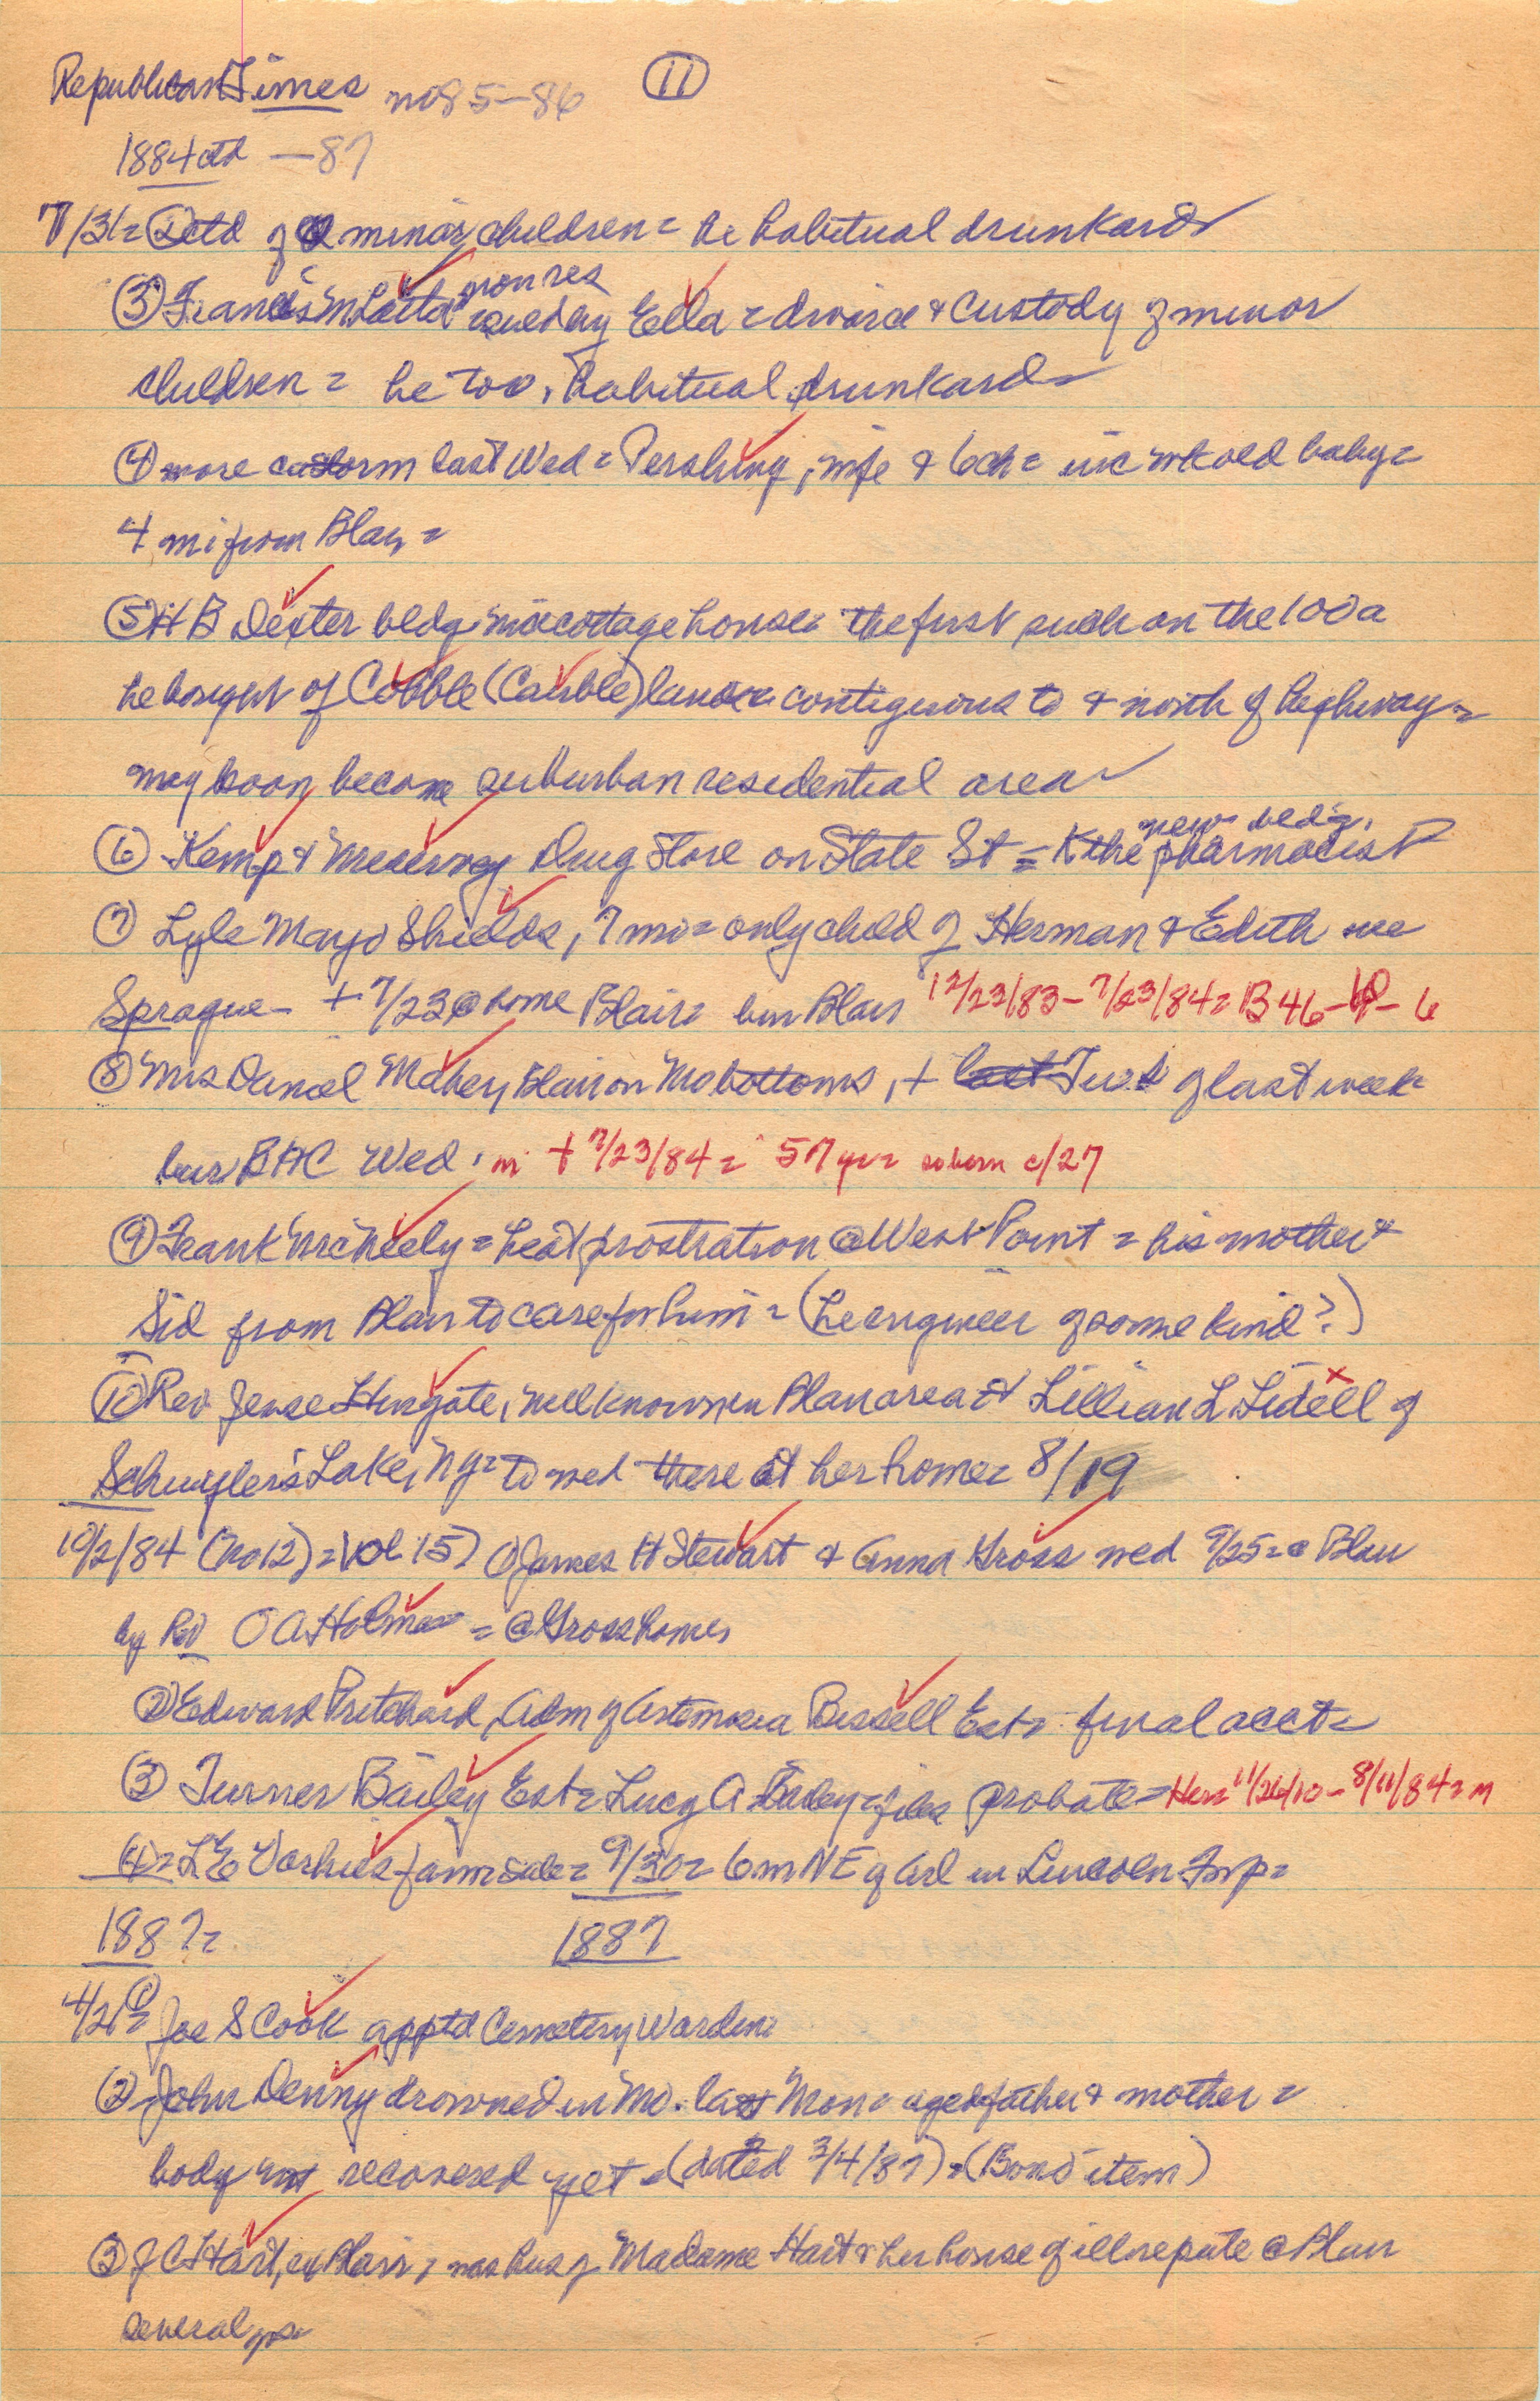 Republican Times no 85-86 11
1884 ctd -87
7/31= 2 ctd of minor children= he habitual drunkard
non res
3 Francis M sued by Ella = divorce & custody of minor
children = he too, habitual drunkard
4 more storm last Wed = Pershing, wife & 6 ch= inc wk old baby=
4 mi from Blair =
5 H B Dexter bldg nice cottage house= the first such on the 100a
he bought of Cobble (Cauble) land= contiguous to & north of highway=
may soon become suburban residential area
new bldg.
6 Kemp & Drug Store on State St = K the pharmacist
7 Lyle Mayo Shields, 7 mo= only child of Herman & Edith nee
Sprague- + 7/23 @ home Blair= bur Blair 12/23/83 - 7/23/84= B 46- - 6
8 Mrs Daniel Blair on Mo bottoms, + last Tues of last week
bur BAC Wed. m + 7/23/84 = 57 yr= so born c/27
9 Frank McNeely = heat prostration @ West Point = his mother &
Sid from Blair to care for him = (he engineer of some kind?)
10 Rev Jesse, well known in Blair area & Lillian L Lidell of
Schuyler's Lake, Ny= to wed there at her home= 8/19
10/2/84 (No 12) = Vol 15) 1 James H Stewart & Anna Gross wed 9/25= @ Blair
by Rev O A = @ Gross home,
2 Edward Pritchard, Adm of Artemisia Bissell Est= final acct=
3 Turner Bailey Est= Lucy A Bailey= files probate= Here 11/26/10 - 8/11/84= m
4= L E Vorhies farm sale= 9/30= 6 m NE of Arl in Lincoln Twp=
188?= 1887
4/21= 1 Joe S Cook apptd Cemetery Warden=
2 John Denny drowned in Mo. last Mon= aged father & mother =
body not recovered yet = (dated 3/4/87) = (Bono item)
3 J C Hart, ex Blair, was hus of Madame Hart & her house of ill repute @ Blair
several yrs=